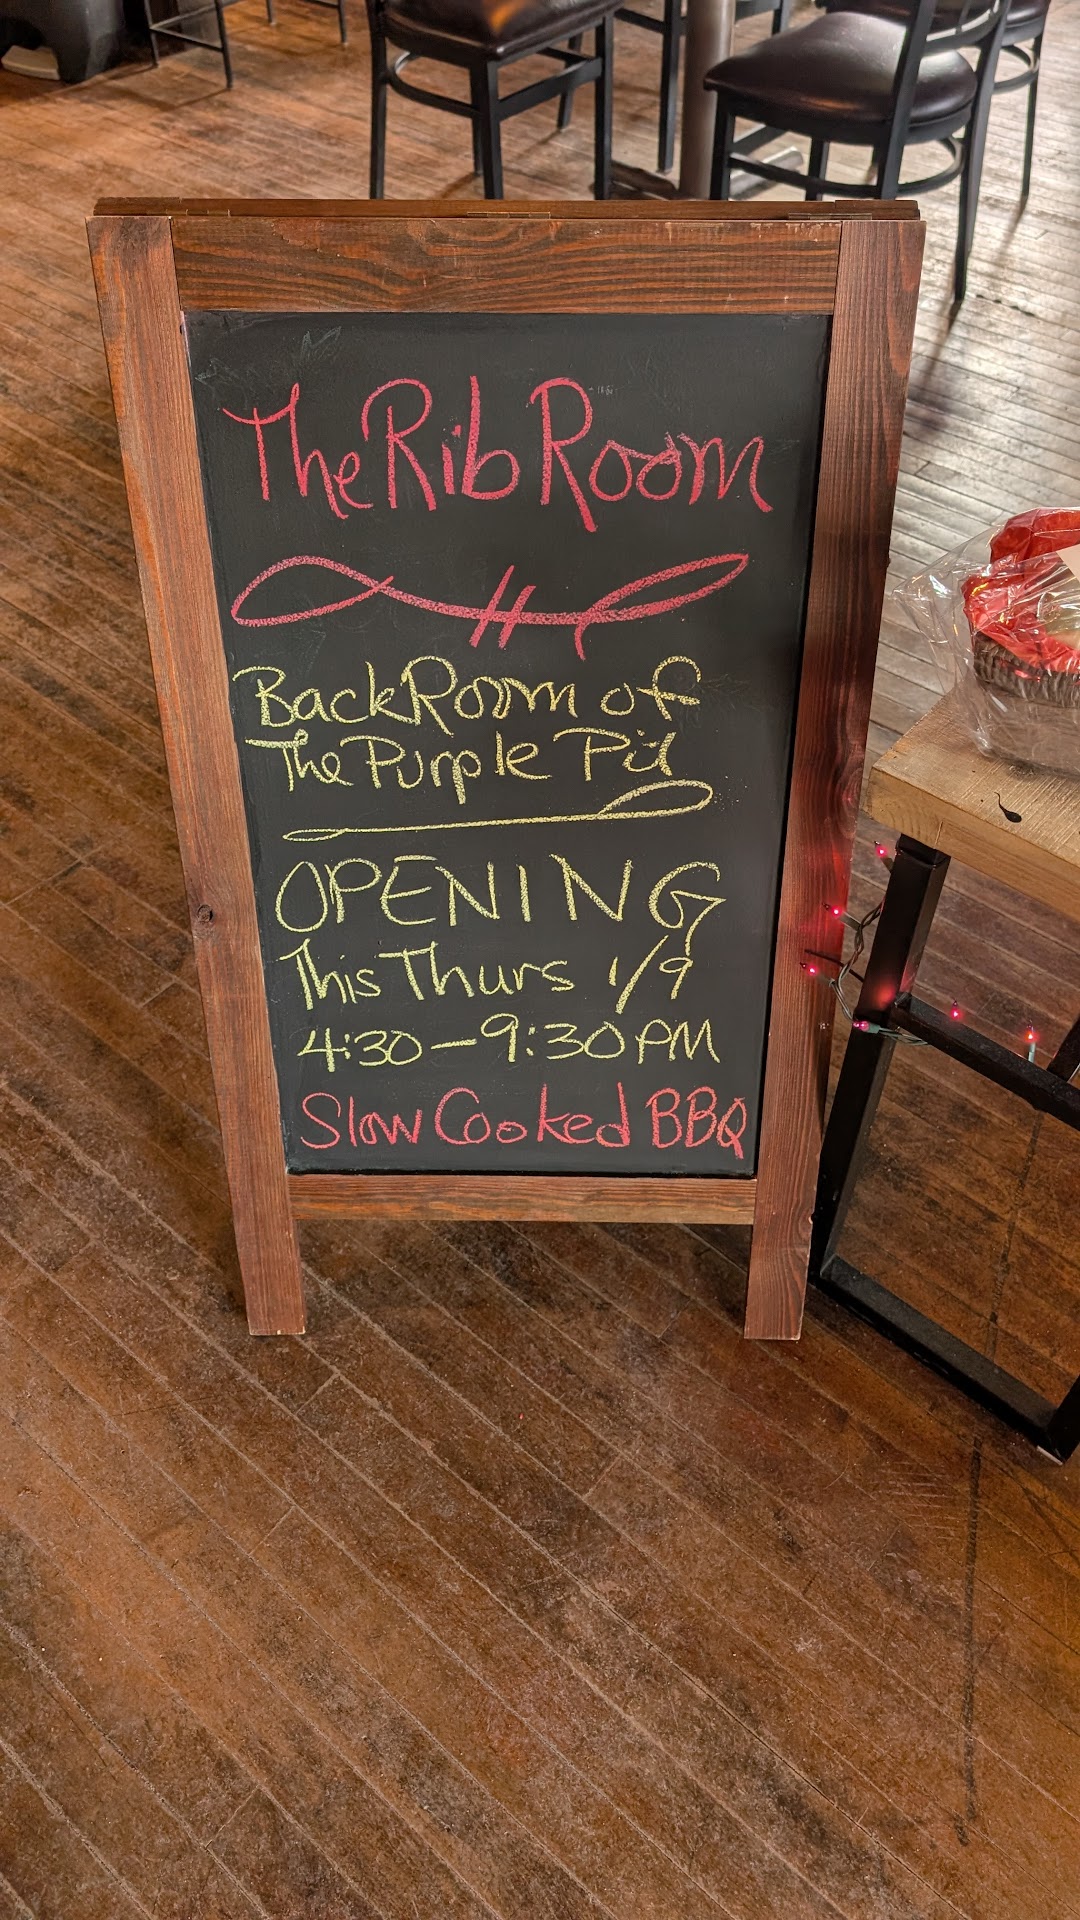 The Rib Room
Back Room of
The Purple Pit
OPENING
This Thurs 1/9
4:30-9:30PM
Slow Cooked BBQ